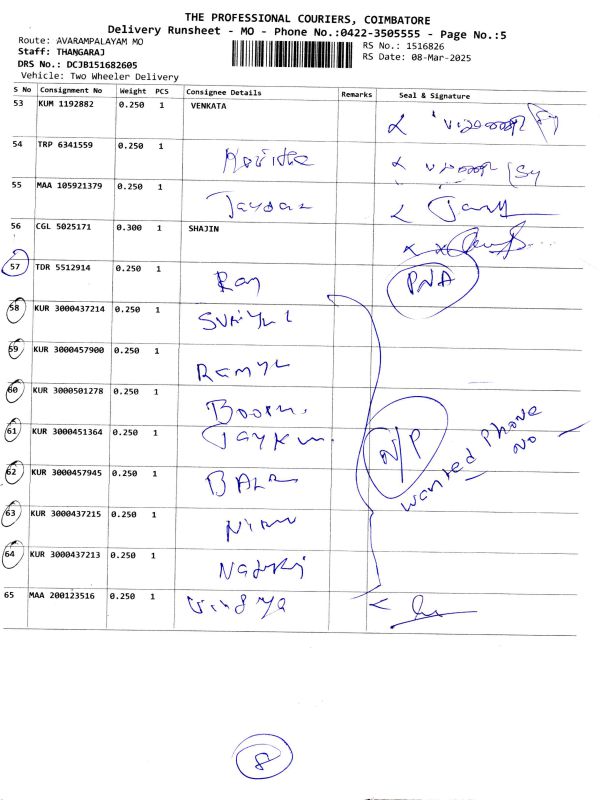 THE PROFESSIONAL COURIERS, COIMBATORE
Delivery Runsheet - MO - Phone No.:0422-3505555 - Page No.:5
Route: AVARAMPALAYAM MO
RS No.: 1516826
Staff: THANGARAJ
RS Date: 08-Mar-2025
DRS No.: DCJB151682605
Vehicle: Two Wheeler Delivery
S No Consignment No Weight PCS Consignee Details Remarks Seal & Signature
53 KUM 1192882 0.250 1 VENKATA
54 TRP 6341559 0.250 1
55 MAA 105921379 0.250 1
56 CGL 5025171 0.300 1 SHAJIN
57 TDR 5512914 0.250 1 PNA
58 KUR 3000437214 0.250 1
59 KUR 3000457900 0.250 1 Ramya
60 KUR 3000501278 0.250 1
61 KUR 3000451364 0.250 1 N/P wanted phone no
62 KUR 3000457945 0.250 1
63 KUR 3000437215 0.250 1
64 KUR 3000437213 0.250 1
65 MAA 200123516 0.250 1 Vindya
8